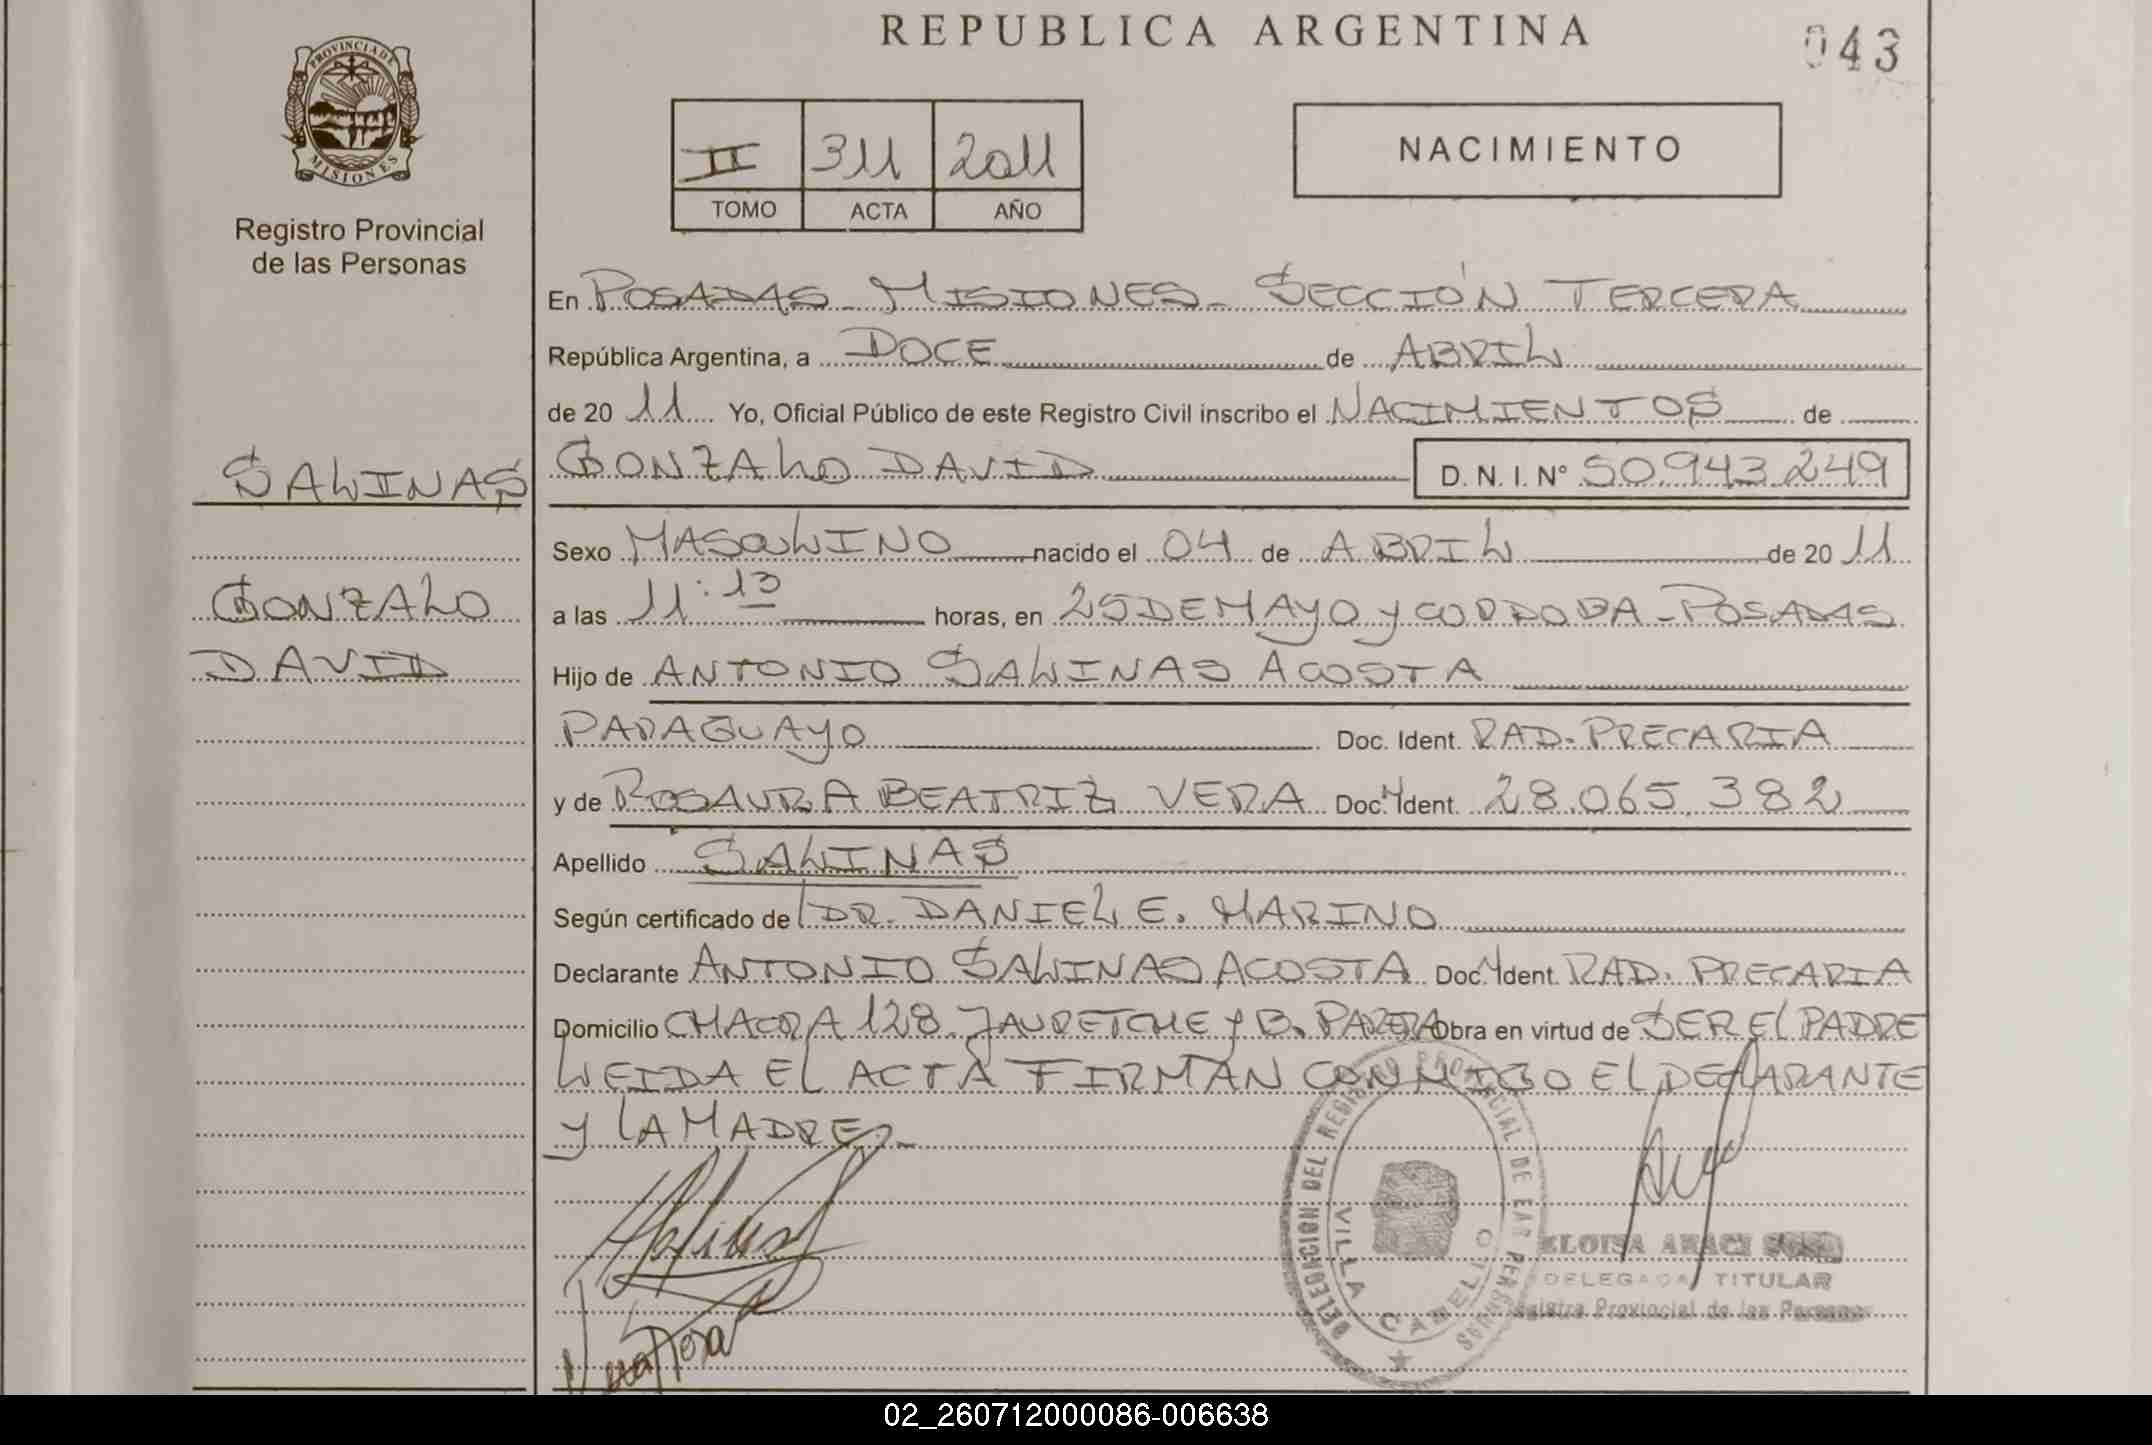 REPUBLICA ARGENTINA
043
PROVINCIA DE
MISIONES
Registro Provincial
de las Personas
II 311 2011
TOMO ACTA AÑO
NACIMIENTO
En POSADAS - MISIONES - SECCIÓN TERCERA
República Argentina, a DOCE de ABRIL
de 20 11 Yo, Oficial Público de este Registro Civil inscribo el NACIMIENTOS de
SALINAS
GONZALO DAVID D. N. I. N° 50.943.249
Sexo MASCULINO nacido el 04 de ABRIL de 20 11
GONZALO
DAVID
a las 11:13 horas, en 25 DE MAYO y CORDOBA - POSADAS
Hijo de ANTONIO SALINAS ACOSTA
PARAGUAYO Doc. Ident. RAD. PRECARIA
y de ROSAURA BEATRIZ VERA Doc. Ident. 28.065.382
Apellido SALINAS
Según certificado de DR. DANIEL E. MARINO
Declarante ANTONIO SALINAS ACOSTA Doc. Ident. RAD. PRECARIA
Domicilio CHACRA 128. JAURETCHE y B. PARERA Obra en virtud de SER EL PADRE
LEIDA EL ACTA FIRMAN CONMIGO EL DECLARANTE
y LA MADRE -
DELEGACION DEL REGISTRO PROVINCIAL DE LAS PERSONAS
VILLA CABELLO
ELOISA ARACI
DELEGADA TITULAR
Registro Provincial de las Personas
Vera Rosa
02_260712000086-006638